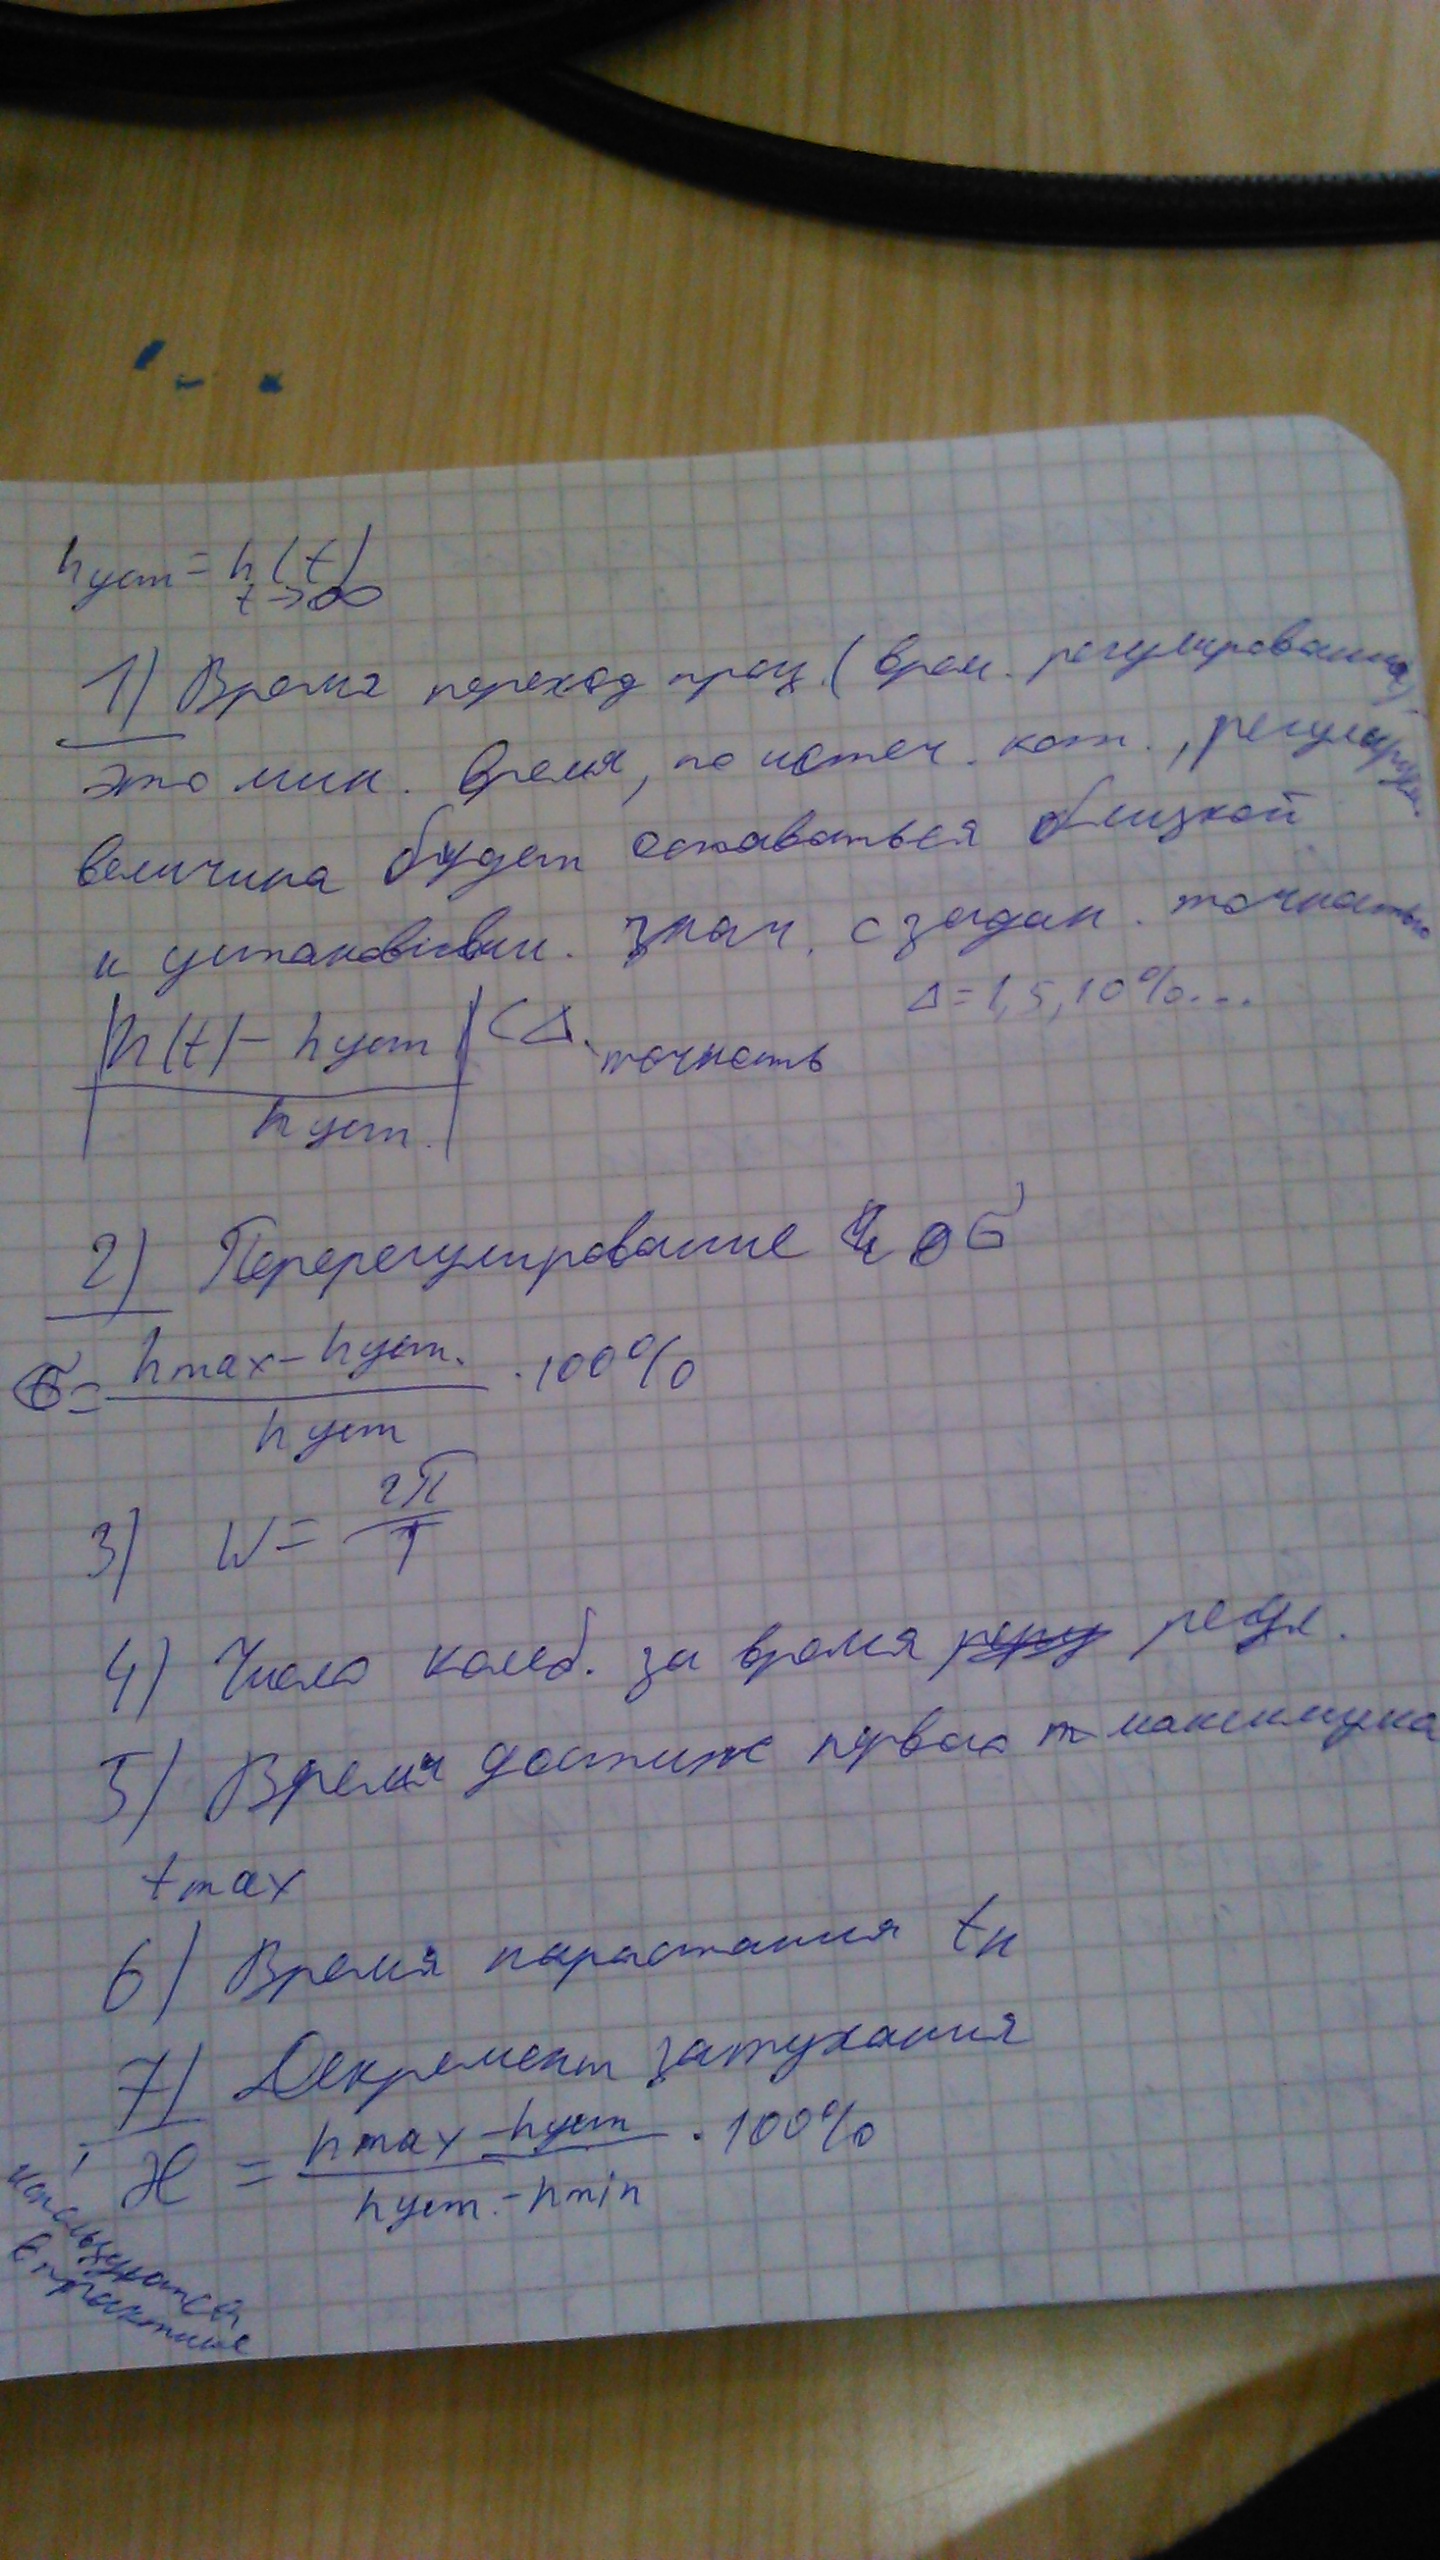 hуст = h(t)
t→∞
1) Время переход проц. (врем. регулирования)
это мин. время, по истеч. кот., регулируем.
величина будет оставаться близкой
к установивш. знач. с задан. точностью
Δ=1,5,10%...
|h(t) - hуст / hуст.| < Δ. точность
2) Перерегулирование σ
σ = hmax - hуст. / hуст · 100%
3) W = 2π / T
4) Число колеб. за время регул.
5) Время достиж первого максимума
tmax
6) Время нарастания tн
7) Декремент затухания
ℋ = hmax - hуст / hуст. - hmin · 100%
используются
в практике